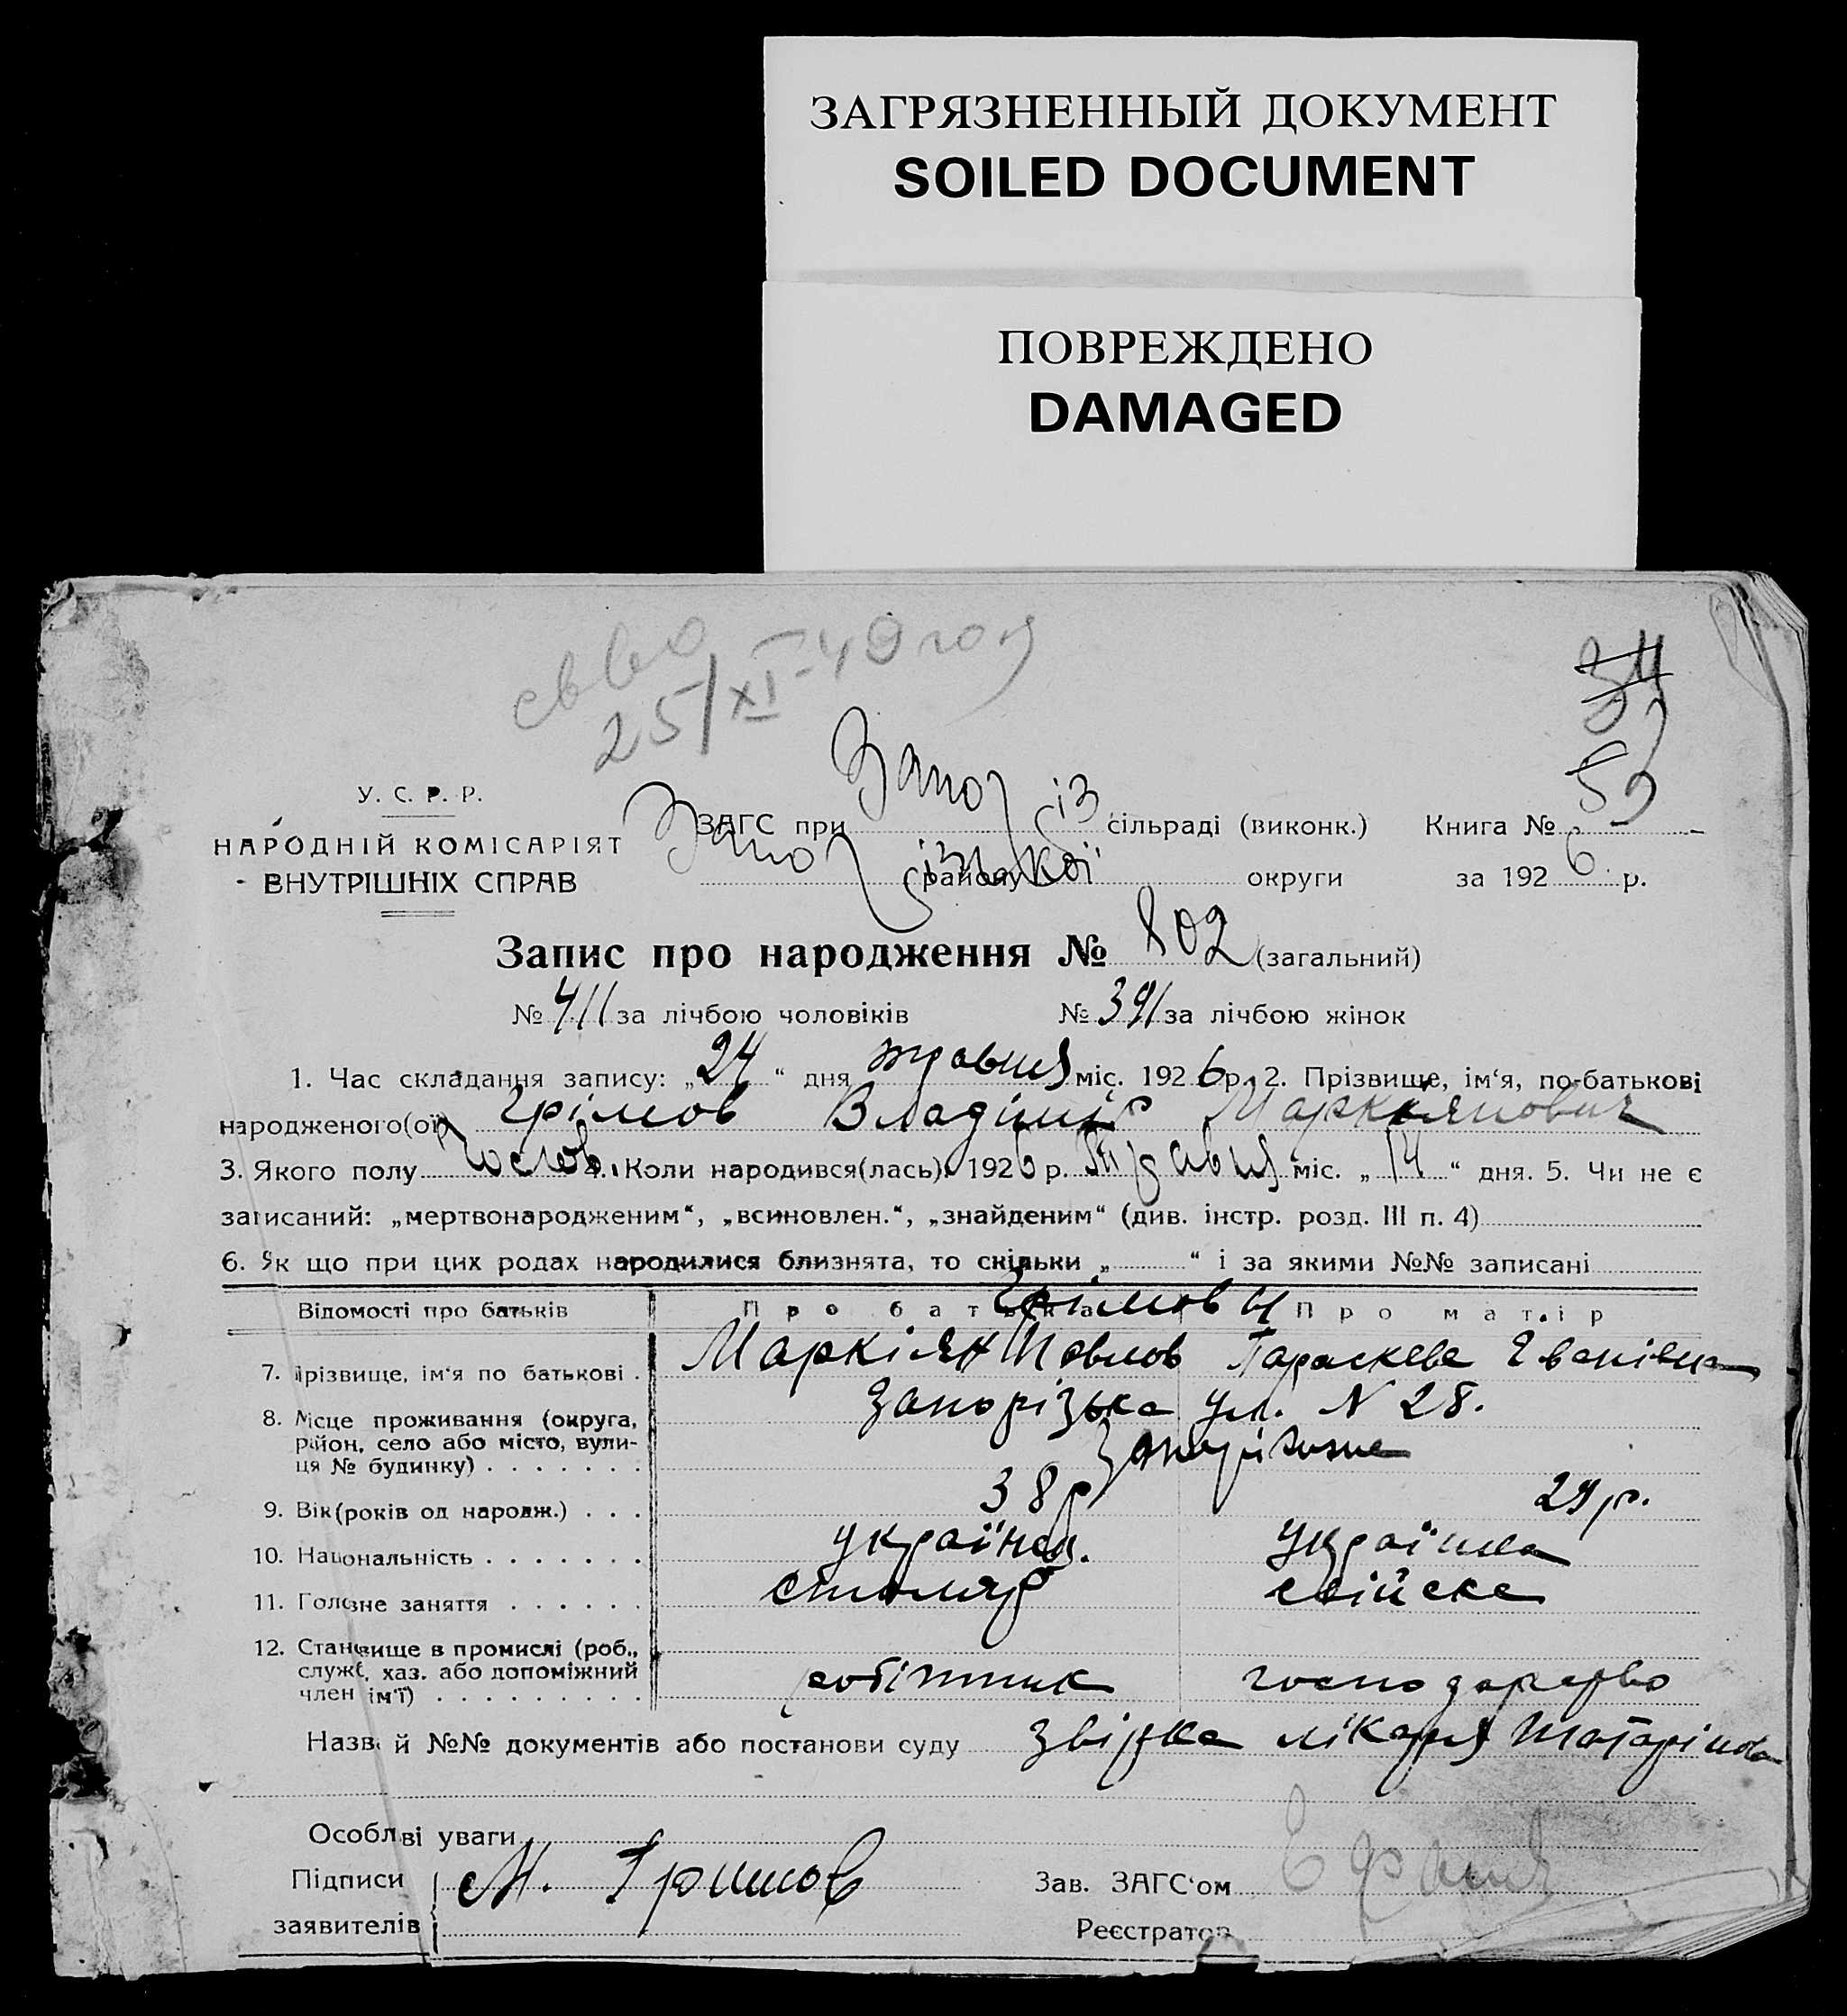 ЗАГРЯЗНЕННЫЙ ДОКУМЕНТ
SOILED DOCUMENT
ПОВРЕЖДЕНО
DAMAGED
25/XI-49 год
34
59
У. С. Р. Р.
НАРОДНІЙ КОМІСАРІЯТ
ВНУТРІШНІХ СПРАВ
ЗАГС при Запоріз сільраді (виконк.) Книга №
Запорізької району округи за 1926 р.
Запис про народження № 802 (загальний)
№ 411 за лічбою чоловіків № 391 за лічбою жінок
1. Час складання запису: „24“ дня травня міс. 1926 р. 2. Прізвище, ім'я, по-батькові
народженого(ої) Грімов Владімір Маркіянович
3. Якого полу чолов. 4. Коли народився(лась): 1926 р. Травня міс. „14“ дня. 5. Чи не є
записаний: „мертвонародженим“, „всиновлен.“, „знайденим“ (див. інстр. розд. III п. 4)
6. Як що при цих родах народилися близнята, то скільки „ “ і за якими №№ записані
Відомості про батьків Про батька Про матір
Грімови
7. Прізвище, ім'я по батькові . Маркіян Павлов Параскева Іванівна
8. Місце проживання (округа, район, село або місто, вулиця № будинку) Запорізька ул. N 28.
Запоріжже
9. Вік (років од народж.) . . . 38 р 29 р.
10. Національність . . . . . . . українец. українка
11. Головне заняття . . . . . . столяр свійске
12. Становище в промислі (роб.,
служб, хаз. або допоміжний
член сім'ї) . . . . . . . . . робітник господарство
Назва й №№ документів або постанови суду звідка лікаря Татарінова
Особливі уваги
Підписи М. Гримов Зав. ЗАГС'ом
заявителів Реєстратор